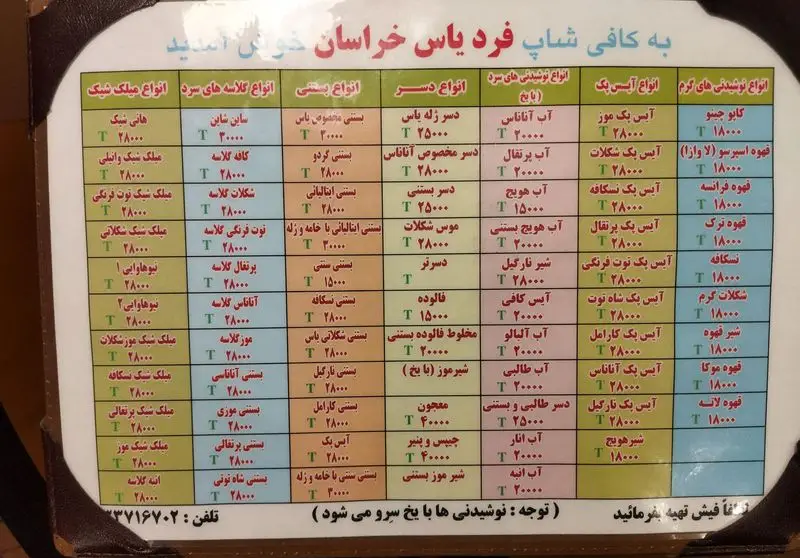 به کافی شاپ فرد یاس خراسان خوش آمدید
انواع نوشیدنی های گرم
کاپو چینو
T ۱۸۰۰۰
قهوه اسپرسو (لا وازا)
T ۱۸۰۰۰
قهوه فرانسه
T ۱۸۰۰۰
قهوه ترک
T ۱۸۰۰۰
نسکافه
T ۱۸۰۰۰
شکلات گرم
T ۱۸۰۰۰
شیر قهوه
T ۱۸۰۰۰
قهوه موکا
T ۱۸۰۰۰
قهوه لاته
T ۱۸۰۰۰
انواع آیس پک
آیس پک موز
T ۲۸۰۰۰
آیس پک شکلات
T ۲۸۰۰۰
آیس پک نسکافه
T ۲۸۰۰۰
آیس پک پرتقال
T ۲۸۰۰۰
آیس پک توت فرنگی
T ۲۸۰۰۰
آیس پک شاه توت
T ۲۸۰۰۰
آیس پک کارامل
T ۲۸۰۰۰
آیس پک آناناس
T ۲۸۰۰۰
آیس پک نارگیل
T ۲۸۰۰۰
شیرهویج
T ۱۸۰۰۰
انواع نوشیدنی های سرد
( با یخ )
آب آناناس
T ۲۰۰۰۰
آب پرتقال
T ۲۰۰۰۰
آب هویج
T ۱۵۰۰۰
آب هویج بستنی
T ۲۰۰۰۰
شیر نارگیل
T ۲۸۰۰۰
آیس کافی
T ۲۰۰۰۰
آب آلبالو
T ۲۰۰۰۰
آب طالبی
T ۲۰۰۰۰
دسر طالبی و بستنی
T ۲۵۰۰۰
آب انار
T ۲۰۰۰۰
آب انبه
T ۲۰۰۰۰
انواع دسر
دسر ژله یاس
T ۲۵۰۰۰
دسر مخصوص آناناس
T ۲۸۰۰۰
دسر بستنی
T ۲۵۰۰۰
موس شکلات
T ۲۸۰۰۰
دسرتر
T
فالوده
T ۱۵۰۰۰
مخلوط فالوده بستنی
T ۲۰۰۰۰
شیرموز (با یخ )
معجون
T ۴۰۰۰۰
چیپس و پنیر
T ۴۰۰۰۰
شیر موز بستنی
انواع بستنی
بستنی مخصوص یاس
T ۳۰۰۰۰
بستنی گردو
T ۲۸۰۰۰
بستنی ایتالیائی
T ۲۸۰۰۰
بستنی ایتالیائی با خامه و ژله
T ۳۰۰۰۰
بستنی سنتی
T ۱۵۰۰۰
بستنی نسکافه
T ۲۸۰۰۰
بستنی شکلاتی یاس
T ۲۸۰۰۰
بستنی نارگیل
T ۲۸۰۰۰
بستنی کارامل
T ۲۸۰۰۰
آیس پک
T ۲۸۰۰۰
بستنی سنتی با خامه و ژله
T ۳۰۰۰۰
انواع گلاسه های سرد
ساین شاین
T ۳۰۰۰۰
کافه گلاسه
T ۲۸۰۰۰
شکلات گلاسه
T ۲۸۰۰۰
توت فرنگی گلاسه
T ۲۸۰۰۰
پرتقال گلاسه
T ۲۸۰۰۰
آناناس گلاسه
T ۲۸۰۰۰
موزگلاسه
T ۲۸۰۰۰
بستنی آناناسی
T ۲۸۰۰۰
بستنی موزی
T ۲۸۰۰۰
بستنی پرتقالی
T ۲۸۰۰۰
بستنی شاه توتی
T ۲۸۰۰۰
انواع میلک شیک
هانی شیک
T ۲۸۰۰۰
میلک شیک وانیلی
T ۲۸۰۰۰
میلک شیک توت فرنگی
T ۲۸۰۰۰
میلک شیک شکلاتی
T ۲۸۰۰۰
نیوهاوایی ۱
T ۲۸۰۰۰
نیوهاوایی ۲
T ۲۸۰۰۰
میلک شیک موزشکلات
T ۲۸۰۰۰
میلک شیک نسکافه
T ۲۸۰۰۰
میلک شیک پرتقالی
T ۲۸۰۰۰
میلک شیک موز
T ۲۸۰۰۰
انبه گلاسه
T ۲۸۰۰۰
فیش تهیه بفرمائید ( توجه : نوشیدنی ها با یخ سرو می شود ) تلفن : ۳۳۷۱۶۷۰۲